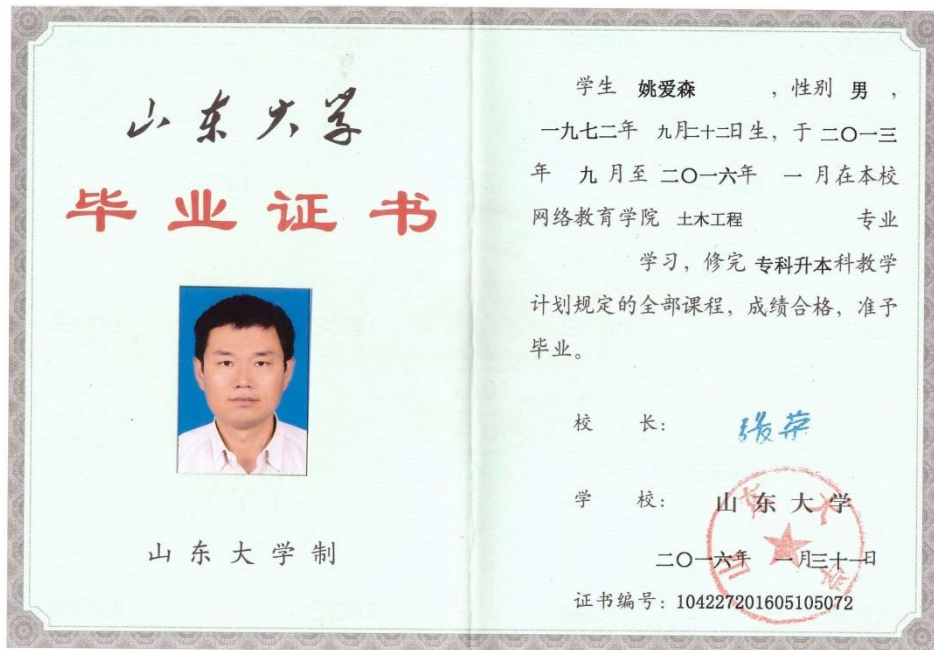 山东大学
毕业证书
山东大学制
学生 姚爱森 ，性别 男 ，
一九七二年 九月二十二日生，于 二〇一三
年 九 月至 二〇一六年 一 月在本校
网络教育学院 土木工程 专业
学习，修完 专科升本科教学
计划规定的全部课程，成绩合格，准予
毕业。
校 长： 张荣
学 校： 山东大学
二〇一六年 一月三十一日
证书编号：104227201605105072
山东大学